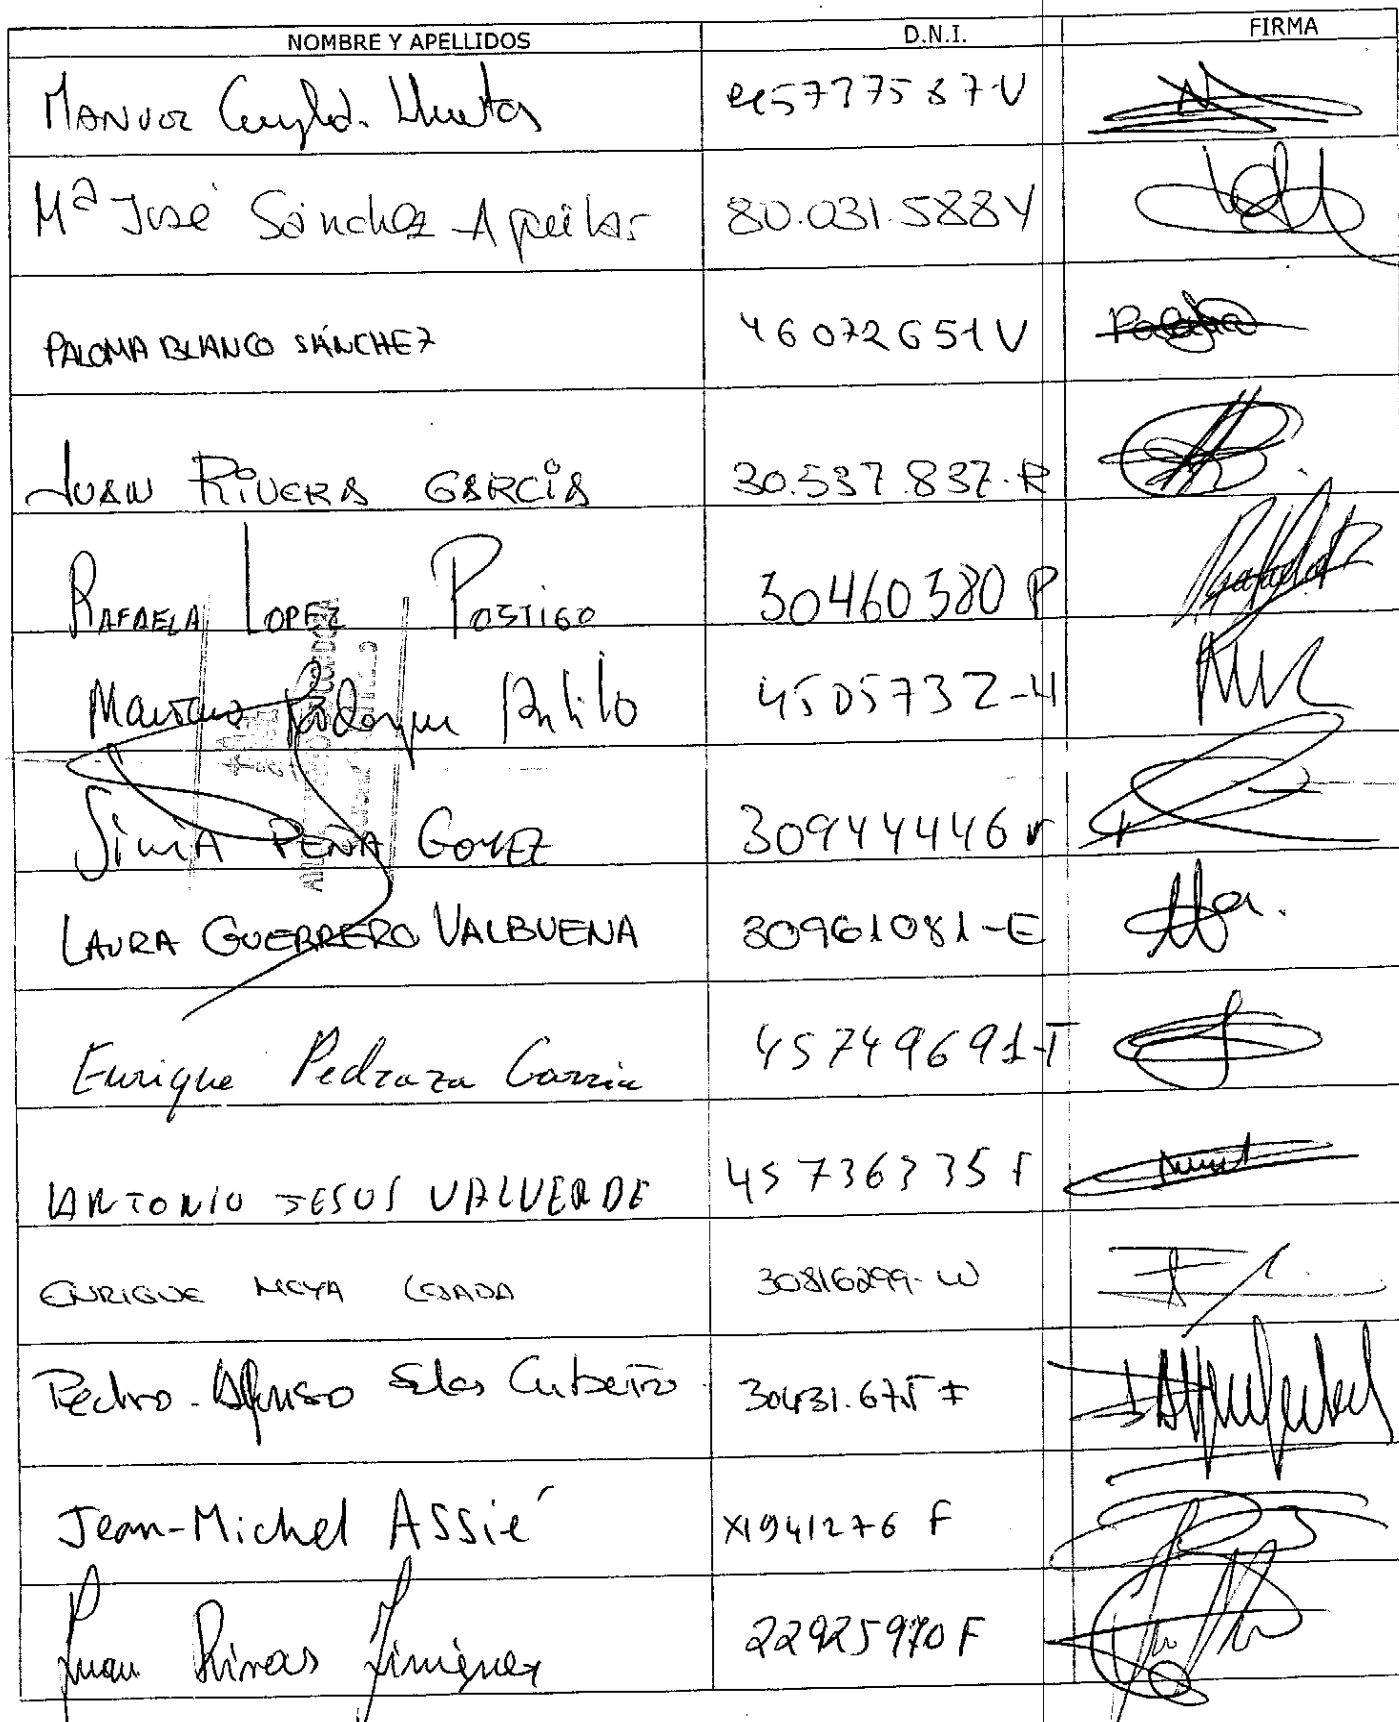 NOMBRE Y APELLIDOS D.N.I. FIRMA
MANUEL
Mª José Sánchez Aguilar 80.031.588Y
PALOMA BLANCO SÁNCHEZ 46072651V
JUAN RIVERA GARCIA 30.537.837-R
RAFAELA LOPEZ POSTIGO 30460380 P
4505732-H
SILVIA PEÑA GOMEZ 30944446
LAURA GUERRERO VALBUENA 30961081-E
Enrique Pedraza 45749691-T
ANTONIO JESUS VALVERDE
ENRIQUE MOYA LOSADA 30816299-W
Pedro-Alfonso Salas Cubero
Jean-Michel Assié X1941276 F
Juan Rivas Jiménez 22925970F